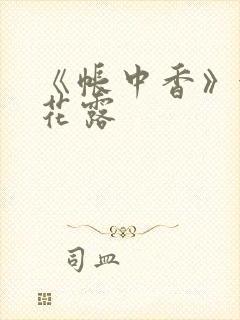 《帐中香》
花露
司皿